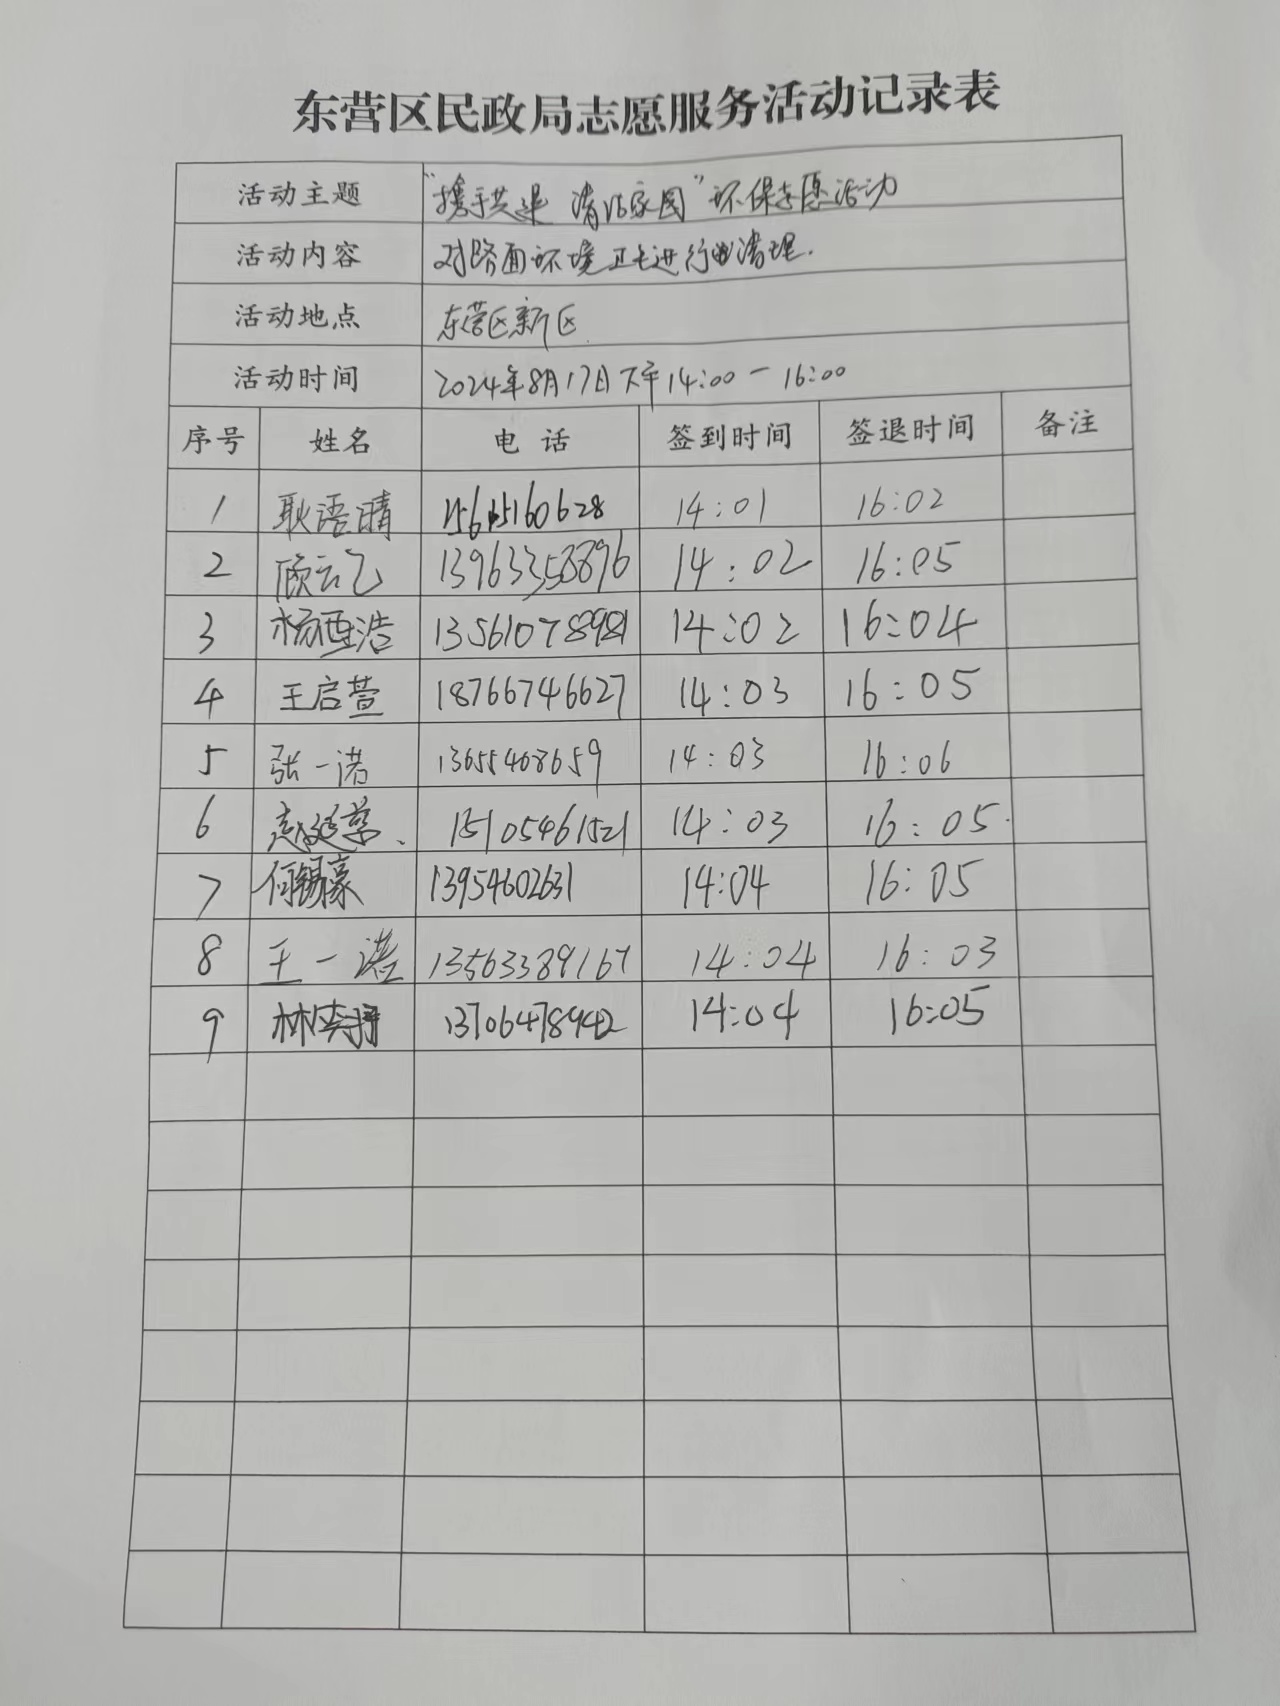 东营区民政局志愿服务活动记录表
活动主题 "携手共建 清洁家园"环保志愿活动
活动内容 对路面环境卫生进行清理.
活动地点 东营区新区
活动时间 2024年8月17日下午14:00-16:00
序号 姓名 电话 签到时间 签退时间 备注
1 耿语晴 14:01 16:02
2 顾云飞 13963358896 14:02 16:05
3 13561078981 14:02 16:04
4 王启萱 18766746627 14:03 16:05
5 张一诺 13655468659 14:03 16:06
6 15105461521 14:03 16:05
7 何锡豪 13954602631 14:04 16:05
8 王一诺 13563389167 14:04 16:03
9 13706478942 14:04 16:05